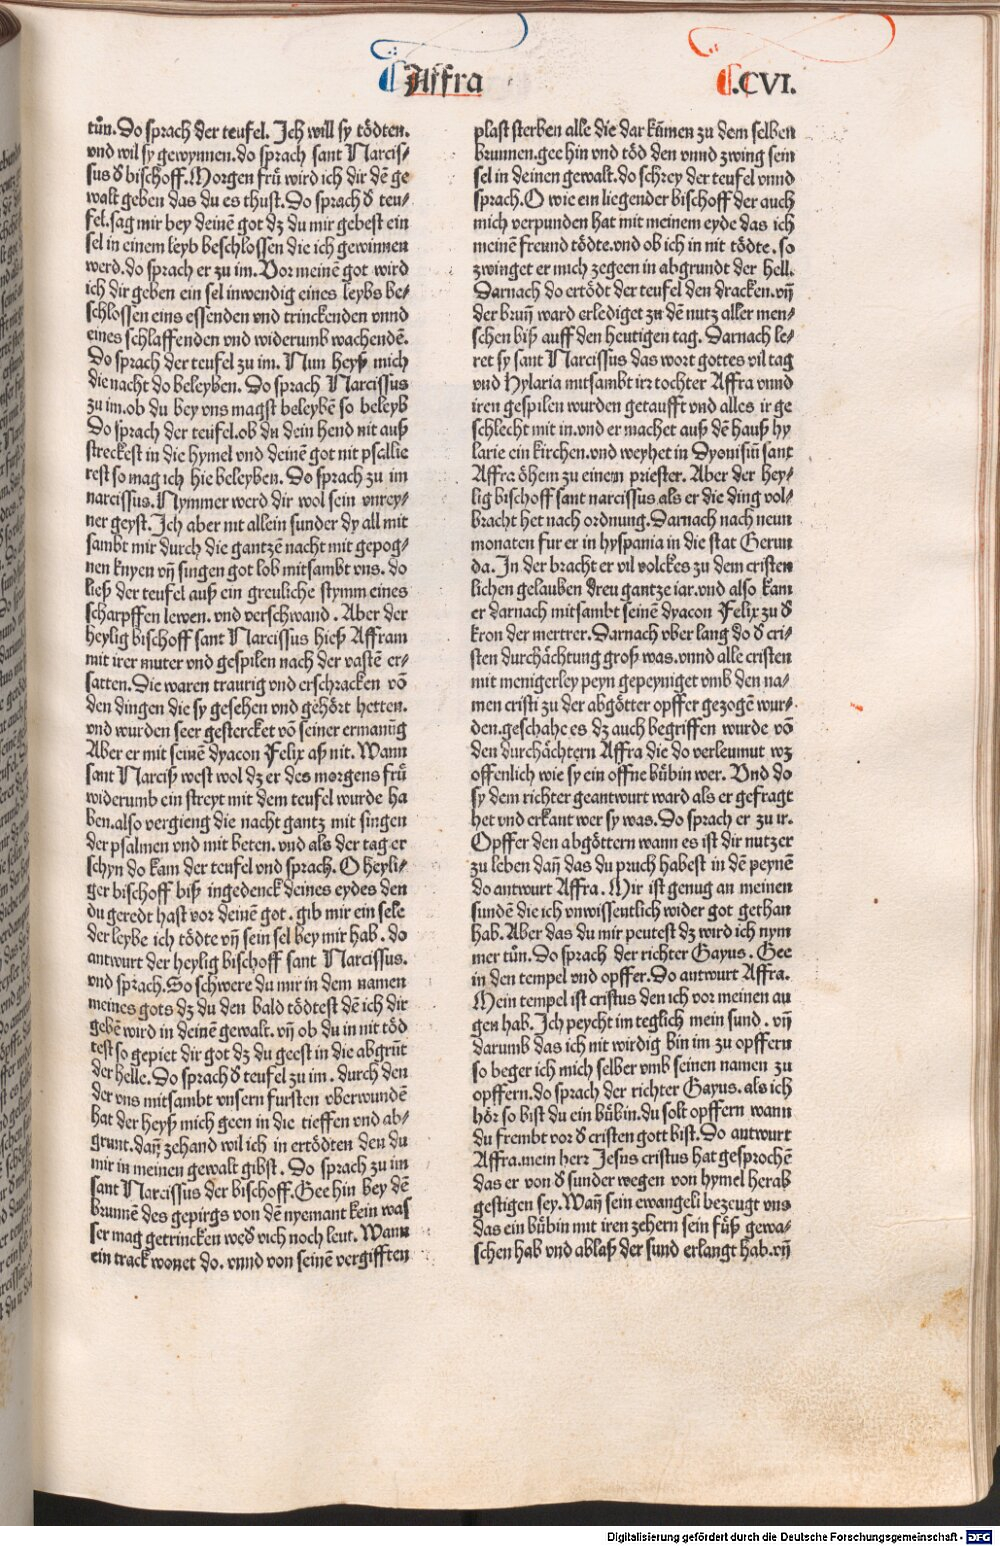 Affra
.CVI.
tůn. Do sprach der teufel. Ich will sy tödten.
vnd wil sy gewynnen. do sprach sant Narcis⸗
sus đ bischoff. Morgen frů wird ich dir dē ge
walt geben das du es thust. Do sprach đ teu⸗
fel. sag mir bey deinē got dz du mir gebest ein
sel in einem leyb beschlossen die ich gewinnen
werd. do sprach er zu im. Vor meinē got wird
ich dir geben ein sel inwendig eines leybs be⸗
schlossen eins essenden vnd trinckenden vnnd
eines schlaffenden vnd widerumb wachendē.
Do sprach der teufel zu im. Nun heyß mich
die nacht do beleyben. Do sprach Narcissus
zu im. ob du bey vns magst beleybē so beleyb
Do sprach der teufel. ob du dein hend nit auß
streckest in die hymel vnd deinē got nit psallie
rest so mag ich hie beleyben. Do sprach zu im
narcissus. Nymmer werd dir wol sein vnrey⸗
ner geyst. Ich aber nit allein sunder dy all mit
sambt mir durch die gantzē nacht mit gepog⸗
nen knyen vn̄ singen got lob mitsambt vns. do
ließ der teufel auß ein greuliche stymm eines
scharpffen lewen. vnd verschwand. Aber der
heylig bischoff sant Narcissus hieß Affram
mit irer muter vnd gespilen nach der vastē er⸗
satten. Die waren traurig vnd erschracken vō
den dingen die sy gesehen vnd gehört hetten.
vnd wurden seer gestercket vō seiner ermanūg
Aber er mit seinē dyacon Felix aß nit. Wann
sant Narciß west wol dz er des morgens frů
widerumb ein streyt mit dem teufel wurde ha
ben. also vergieng die nacht gantz mit singen
der psalmen vnd mit beten. vnd als der tag er
schyn do kam der teufel vnd sprach. O heyli⸗
ger bischoff biß ingedenck deines eydes den
du geredt hast vor deinē got. gib mir ein sele
der leybe ich tödte vn̄ sein sel bey mir hab. do
antwurt der heylig bischoff sant Narcissus.
vnd sprach. So schwere du mir in dem namen
meines gots dz du den bald tödtest dē ich dir
gebē wird in deinē gewalt. vn̄ ob du in nit töd
test so gepiet dir got dz du geest in die abgrūt
der helle. Do sprach đ teufel zu im. durch den
der vns mitsambt vnsern fursten vberwundē
hat der heyß mich geen in die tieffen vnd ab⸗
grunt. dañ zehand wil ich in ertödten den du
mir in meinen gewalt gibst. Do sprach zu im
sant Narcissus der bischoff. Gee hin bey dē
brunnē des gepirgs von dē nyemant kein was
ser mag getrincken weđ vich noch leut. Wann
ein track wonet do. vnnd von seinē vergifften
plast sterben alle die dar kūmen zu dem selben
brunnen. gee hin vnd töd den vnnd zwing sein
sel in deinen gewalt. do schrey der teufel vnnd
sprach. O wie ein liegender bischoff der auch
mich verpunden hat mit meinem eyde das ich
meinē freund tödte. vnd ob ich in nit tödte. so
zwinget er mich zegeen in abgrundt der hell.
Darnach do ertödt der teufel den dracken. vn̄
der bruñ ward erlediget zu dē nutz aller men⸗
schen biß auff den heutigen tag. Darnach le⸗
ret sy sant Narcissus das wort gottes vil tag
vnd Hylaria mitsambt irr tochter Affra vnnd
iren gespilen wurden getaufft vnd alles ir ge
schlecht mit in. vnd er machet auß dē hauß hy
larie ein kirchen. vnd weyhet in Dyonisiū sant
Affra öhem zu einem priester. Aber der hey⸗
lig bischoff sant narcissus als er die ding vol⸗
bracht het nach ordnung. Darnach nach neun
monaten fur er in hyspania in die stat Gerun
da. In der bracht er vil volckes zu dem cristen
lichen gelauben dreu gantze iar. vnd also kam
er darnach mitsambt seinē dyacon Felix zu đ
kron der mertrer. Darnach vber lang do đ cri⸗
sten durchächtung groß was. vnnd alle cristen
mit menigerley peyn gepeyniget vmb den na⸗
men cristi zu der abgötter opffer gezogē wur⸗
den. geschahe es dz auch begriffen wurde vō
den durchächtern Affra die do verleumut wz
offenlich wie sy ein offne bůbin wer. Vnd do
sy dem richter geantwurt ward als er gefragt
het vnd erkant wer sy was. Do sprach er zu ir.
Opffer den abgöttern wann es ist dir nutzer
zu leben dañ das du pruch habest in dē peynē
do antwurt Affra. Mir ist genug an meinen
sundē die ich vnwissentlich wider got gethan
hab. Aber das du mir peutest dz wird ich nym
mer tůn. Do sprach der richter Gayus. Gee
in den tempel vnd opffer. Do antwurt Affra.
Mein tempel ist cristus den ich vor meinen au
gen hab. Ich peycht im teglich mein sund. vn̄
darumb das ich nit wirdig bin im zu opffern
so beger ich mich selber vmb seinen namen zu
opffern. do sprach der richter Gayus. als ich
hör so bist du ein bůbin. du solt opffern wann
du frembt vor đ cristen gott bist. Do antwurt
Affra. mein herr Jesus cristus hat gesprochē
das er von đ sunder wegen von hymel herab
gestigen sey. Wañ sein ewangeli bezeugt vns
das ein bůbin mit iren zehern sein fůß gewa⸗
schen hab vnd ablaß der sund erlangt hab. vn̄
Digitalisierung gefördert durch die Deutsche Forschungsgemeinschaft - DFG